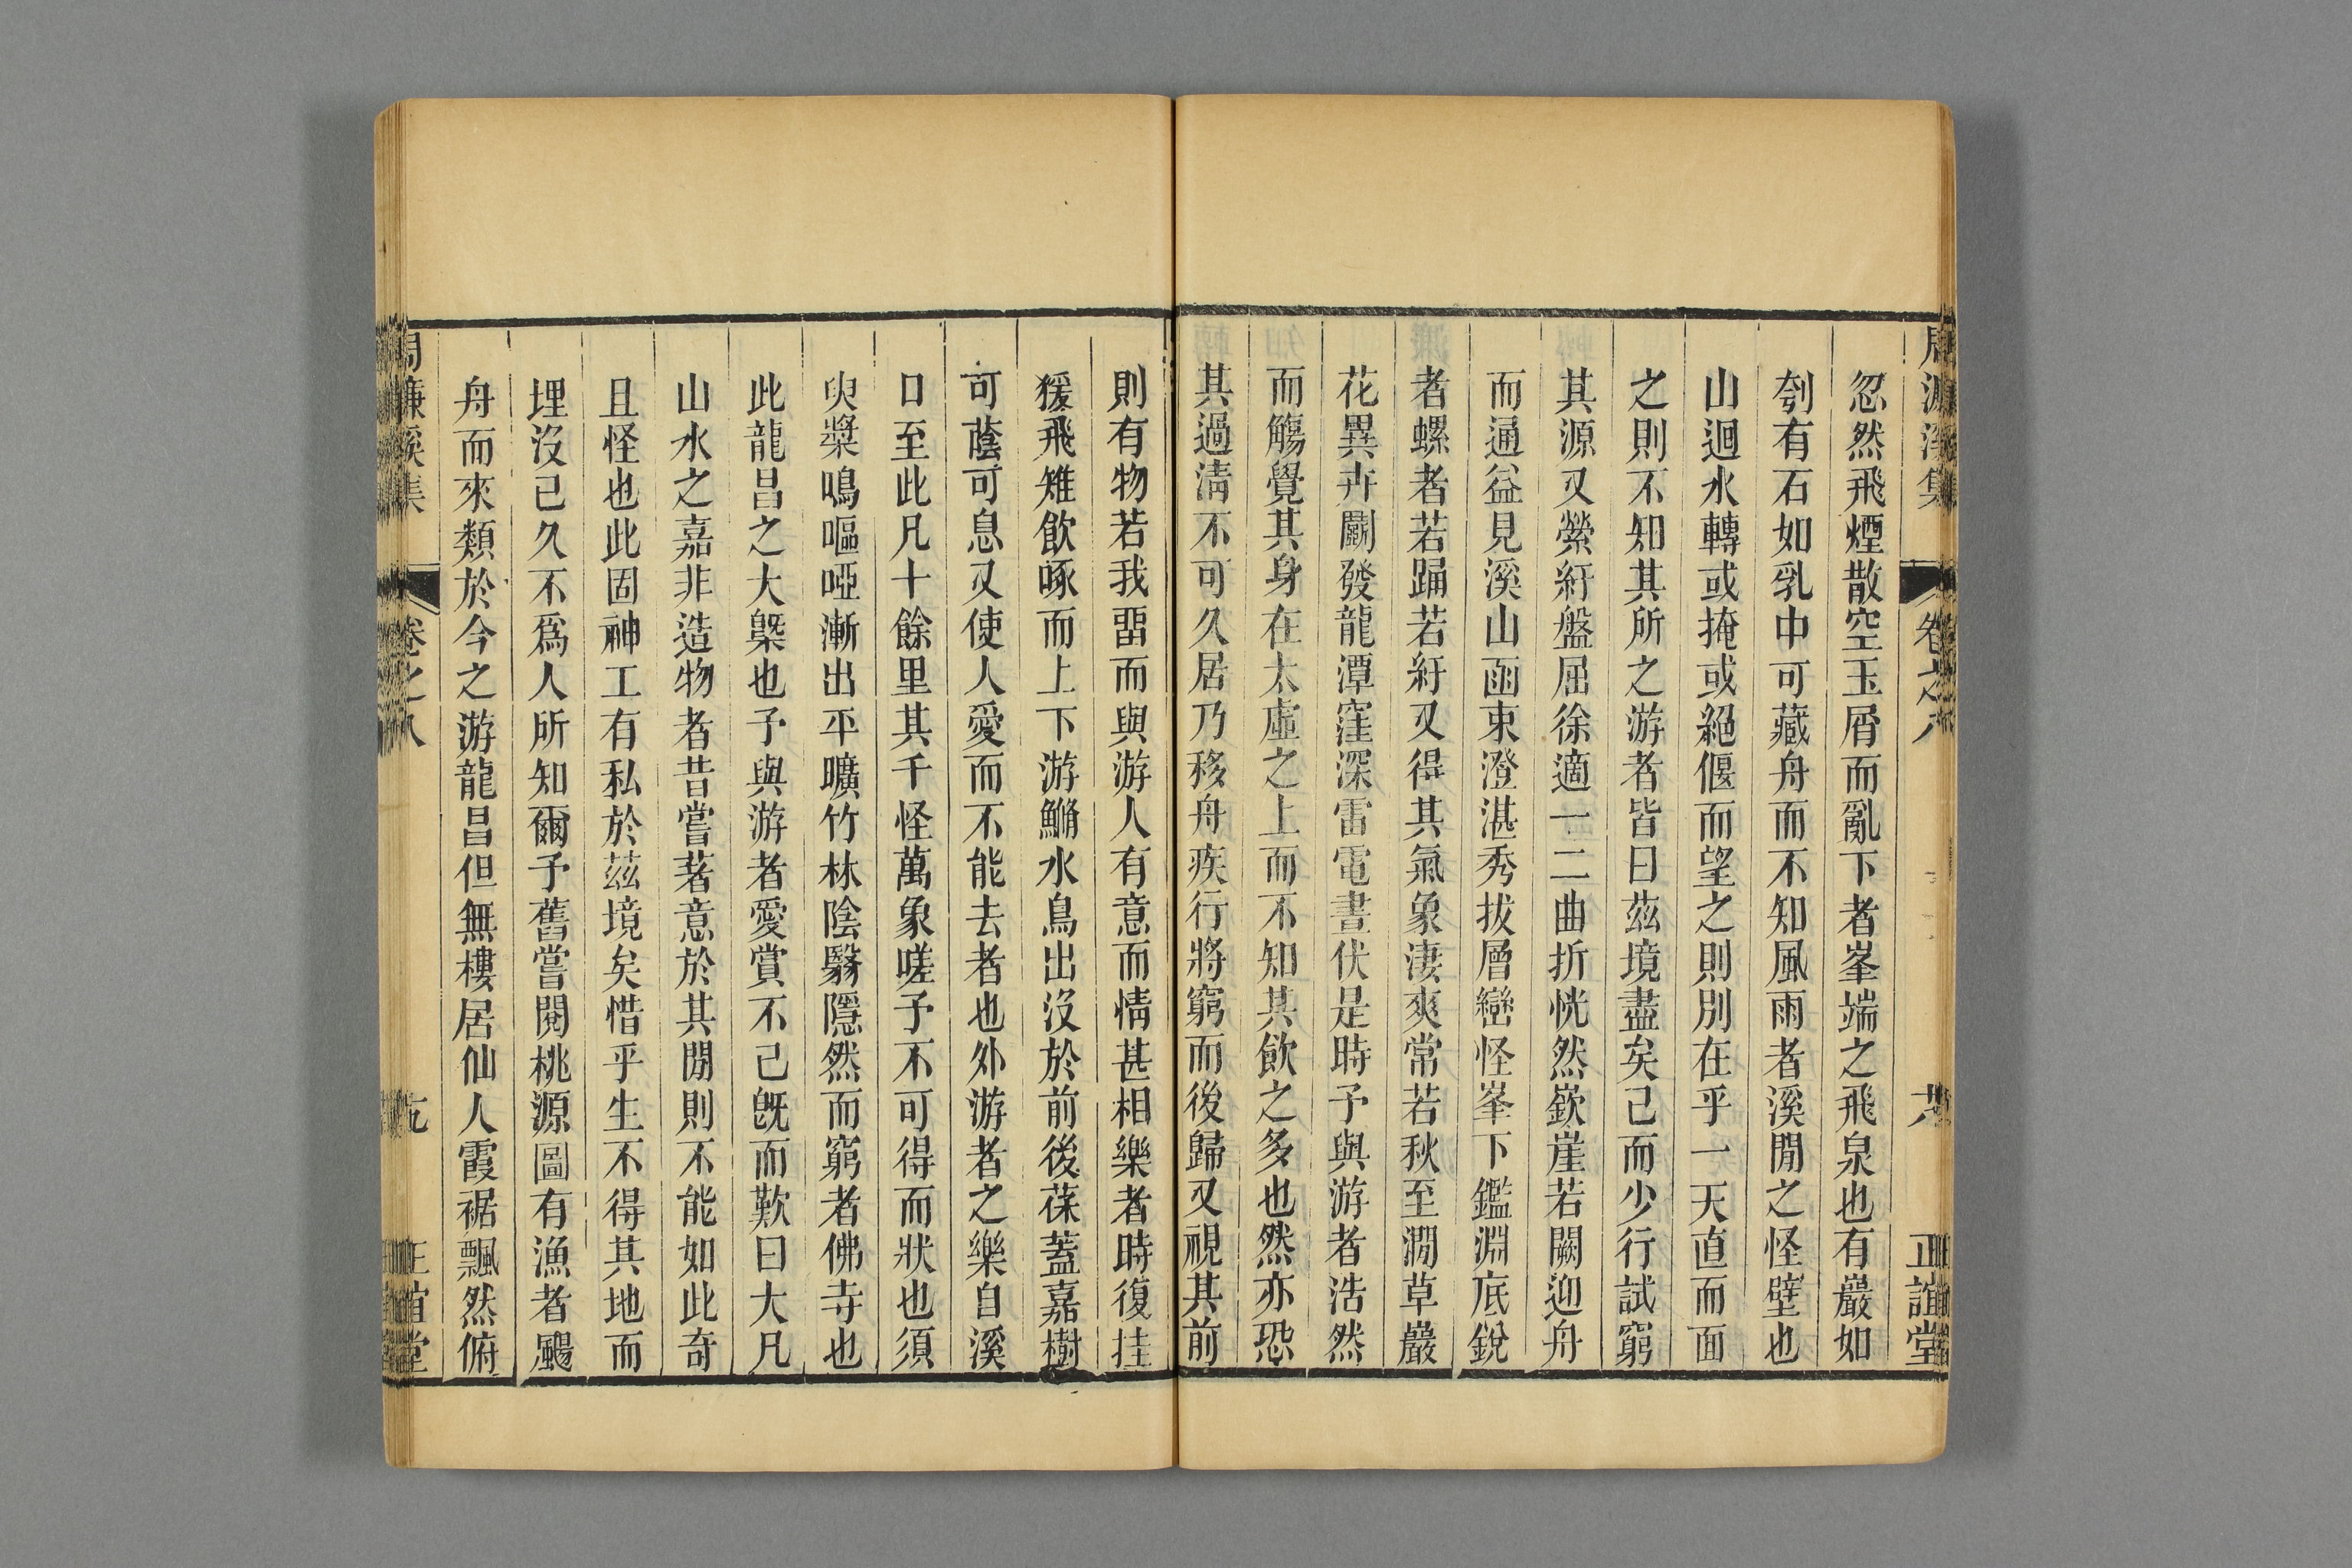 周濂溪集 卷之八 共 正誼堂
忽然飛煙散空玉屑而亂下者峯端之飛泉也有巖如
刳有石如乳中可藏舟而不知風雨者溪閒之怪壁也
山迴水轉或掩或絕偃而望之則別在乎一天直而面
之則不知其所之游者皆曰茲境盡矣已而少行試窮
其源又縈紆盤屈徐適一二曲折恍然嶔崖若闕迎舟
而通益見溪山函東澄湛秀拔層巒怪峯下鑑淵底銳
者螺者若踊若紆又得其氣象淒爽常若秋至澗草巖
花異卉鬭發龍潭窪深雷電晝伏是時予與游者浩然
而觴覺其身在太虛之上而不知其飲之多也然亦恐
其過淸不可久居乃移舟疾行將窮而後歸又視其前
則有物若我畱而與游人有意而情甚相樂者時復挂
猨飛雉飲啄而上下游鯈水鳥出沒於前後葆蓋嘉樹
可蔭可息又使人愛而不能去者也外游者之樂自溪
口至此凡十餘里其千怪萬象嗟予不可得而狀也須
臾槳鳴嘔啞漸出平曠竹林陰翳隱然而窮者佛寺也
此龍昌之大槩也予與游者愛賞不已旣而歎曰大凡
山水之嘉非造物者昔嘗著意於其閒則不能如此奇
且怪也此固神工有私於茲境矣惜乎生不得其地而
埋沒已久不爲人所知爾予舊嘗閱桃源圖有漁者颺
舟而來類於今之游龍昌但無樓居仙人霞裾飄然俯
周濂溪集 卷之八 正誼堂